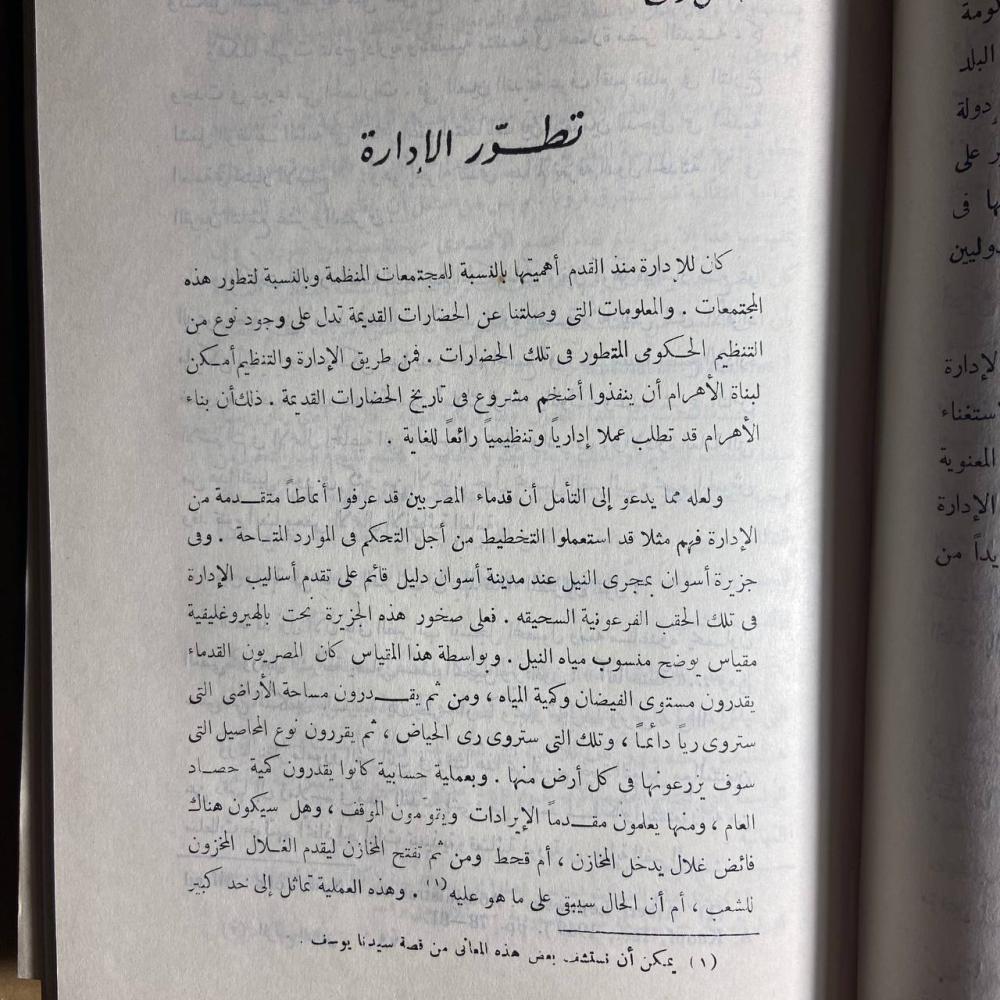 تطوّر الإدارة
كان للإدارة منذ القدم أهميتها بالنسبة للمجتمعات المنظمة وبالنسبة لتطور هذه
المجتمعات . والمعلومات التى وصلتنا عن الحضارات القديمة تدل على وجود نوع من
التنظيم الحكومى المتطور فى تلك الحضارات . فمن طريق الإدارة والتنظيم أمكن
لبناة الأهرام أن ينفذوا أضخم مشروع فى تاريخ الحضارات القديمة . ذلك أن بناء
الأهرام قد تطلب عملا إدارياً وتنظيمياً رائعاً للغاية .
ولعله مما يدعو إلى التأمل أن قدماء المصريين قد عرفوا أنماطاً متقدمة من
الإدارة فهم مثلا قد استعملوا التخطيط من أجل التحكم فى الموارد المتاحة . وفى
جزيرة أسوان بمجرى النيل عند مدينة أسوان دليل قائم على تقدم أساليب الإدارة
فى تلك الحقب الفرعونية السحيقه . فعلى صخور هذه الجزيرة نحت بالهيروغليفية
مقياس يوضح منسوب مياه النيل . وبواسطة هذا المقياس كان المصريون القدماء
يقدرون مستوى الفيضان وكمية المياه ، ومن ثم يقدرون مساحة الأراضى التى
ستروى رياً دائماً ، وتلك التى ستروى رى الحياض ، ثم يقررون نوع المحاصيل التى
سوف يزرعونها فى كل أرض منها . وبعملية حسابية كانوا يقدرون كمية حصاد
العام ، ومنها يعلمون مقدماً الإيرادات ويتوقعون الموقف ، وهل سيكون هناك
فائض غلال يدخل المخازن ، أم قحط ومن ثم تفتح المخازن ليقدم الغلال المخزون
للشعب ، أم أن الحال سيبقى على ما هو عليه(١) . وهذه العملية تماثل إلى حد كبير
(١) يمكن أن نستشف بعض هذه المعانى من قصة سيدنا يوسف .
كومة
البلد
دولة
على
ها فى
دوليين
لإدارة
استغناء
المعنوية
الإدارة
يداً من